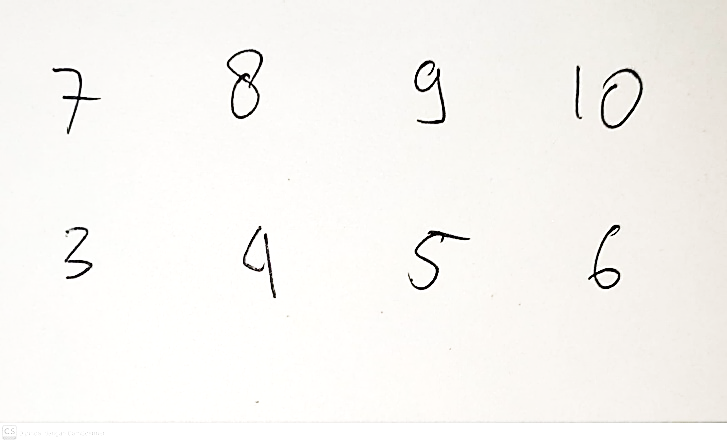 7 8 9 10
3 4 5 6
CS